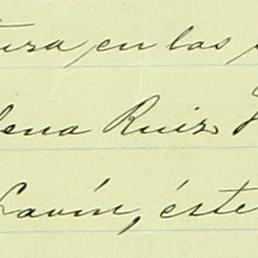 tura en las
lena Ruiz
Lavín, éste